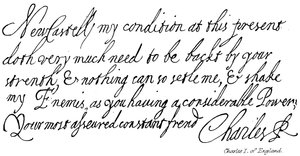 Newcastell, my condition at this present
doth very much need to be backt by your
strenth, & nothing can so setle me, & shake
my Enemis, as you having a considerable Power,
Your most asseured constant frend Charles R
Charles I. of England.